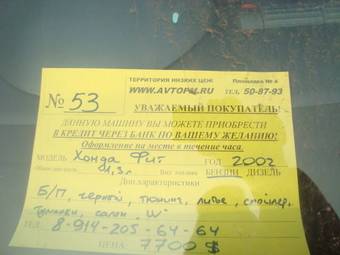 ТЕРРИТОРИЯ НИЗКИХ ЦЕН! Площадка № 4
WWW.AVTOPU.RU ТЕЛ. 50-87-93
№ 53
УВАЖАЕМЫЙ ПОКУПАТЕЛЬ!
ДАННУЮ МАШИНУ ВЫ МОЖЕТЕ ПРИОБРЕСТИ
В КРЕДИТ ЧЕРЕЗ БАНК ПО ВАШЕМУ ЖЕЛАНИЮ!
Оформление на месте в течение часа.
МОДЕЛЬ Хонда Фит ГОД 2002
1,3 л БЕНЗИН ДИЗЕЛЬ
Доп.характеристики:
Б/П, черный, тюнинг, литье, спойлер,
туманки, салон "W"
ТЕЛ. 8-914-205-64-64
ЦЕНА 7700 $